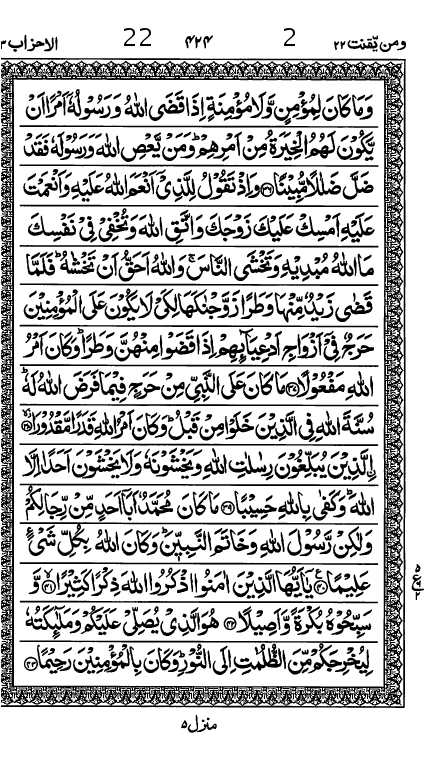 ومن یّقنت ۲۲ 2 ۴۲۴ 22 الاحزاب ۳
وَمَا كَانَ لِمُؤْمِنٍ وَّلَا مُؤْمِنَةٍ اِذَا قَضَى اللّٰهُ وَرَسُوْلُهٗۤ اَمْرًا اَنْ
یَّكُوْنَ لَهُمُ الْخِیَرَةُ مِنْ اَمْرِهِمْ ؕ وَمَنْ یَّعْصِ اللّٰهَ وَرَسُوْلَهٗ فَقَدْ
ضَلَّ ضَلٰلًا مُّبِیْنًا ۳۶ وَاِذْ تَقُوْلُ لِلَّذِیْۤ اَنْعَمَ اللّٰهُ عَلَیْهِ وَاَنْعَمْتَ
عَلَیْهِ اَمْسِكْ عَلَیْكَ زَوْجَكَ وَاتَّقِ اللّٰهَ وَتُخْفِیْ فِیْ نَفْسِكَ
مَا اللّٰهُ مُبْدِیْهِ وَتَخْشَى النَّاسَ ۚ وَاللّٰهُ اَحَقُّ اَنْ تَخْشٰىهُ ؕ فَلَمَّا
قَضٰى زَیْدٌ مِّنْهَا وَطَرًا زَوَّجْنٰكَهَا لِكَیْ لَا یَكُوْنَ عَلَى الْمُؤْمِنِیْنَ
حَرَجٌ فِیْۤ اَزْوَاجِ اَدْعِیَآىِٕهِمْ اِذَا قَضَوْا مِنْهُنَّ وَطَرًا ؕ وَكَانَ اَمْرُ
اللّٰهِ مَفْعُوْلًا ۳۷ مَا كَانَ عَلَى النَّبِیِّ مِنْ حَرَجٍ فِیْمَا فَرَضَ اللّٰهُ لَهٗ ؕ
سُنَّةَ اللّٰهِ فِی الَّذِیْنَ خَلَوْا مِنْ قَبْلُ ؕ وَكَانَ اَمْرُ اللّٰهِ قَدَرًا مَّقْدُوْرَا ۳۸
اِ۟لَّذِیْنَ یُبَلِّغُوْنَ رِسٰلٰتِ اللّٰهِ وَیَخْشَوْنَهٗ وَلَا یَخْشَوْنَ اَحَدًا اِلَّا
اللّٰهَ ؕ وَكَفٰى بِاللّٰهِ حَسِیْبًا ۳۹ مَا كَانَ مُحَمَّدٌ اَبَاۤ اَحَدٍ مِّنْ رِّجَالِكُمْ
وَلٰكِنْ رَّسُوْلَ اللّٰهِ وَخَاتَمَ النَّبِیّٖنَ ؕ وَكَانَ اللّٰهُ بِكُلِّ شَیْءٍ
عَلِیْمًا ۴۰ یٰۤاَیُّهَا الَّذِیْنَ اٰمَنُوا اذْكُرُوا اللّٰهَ ذِكْرًا كَثِیْرًا ۴۱ وَّ
سَبِّحُوْهُ بُكْرَةً وَّاَصِیْلًا ۴۲ هُوَ الَّذِیْ یُصَلِّیْ عَلَیْكُمْ وَمَلٰٓىِٕكَتُهٗ
لِیُخْرِجَكُمْ مِّنَ الظُّلُمٰتِ اِلَى النُّوْرِ ؕ وَكَانَ بِالْمُؤْمِنِیْنَ رَحِیْمًا ۴۳
۵ ع ۲
منزل ۵